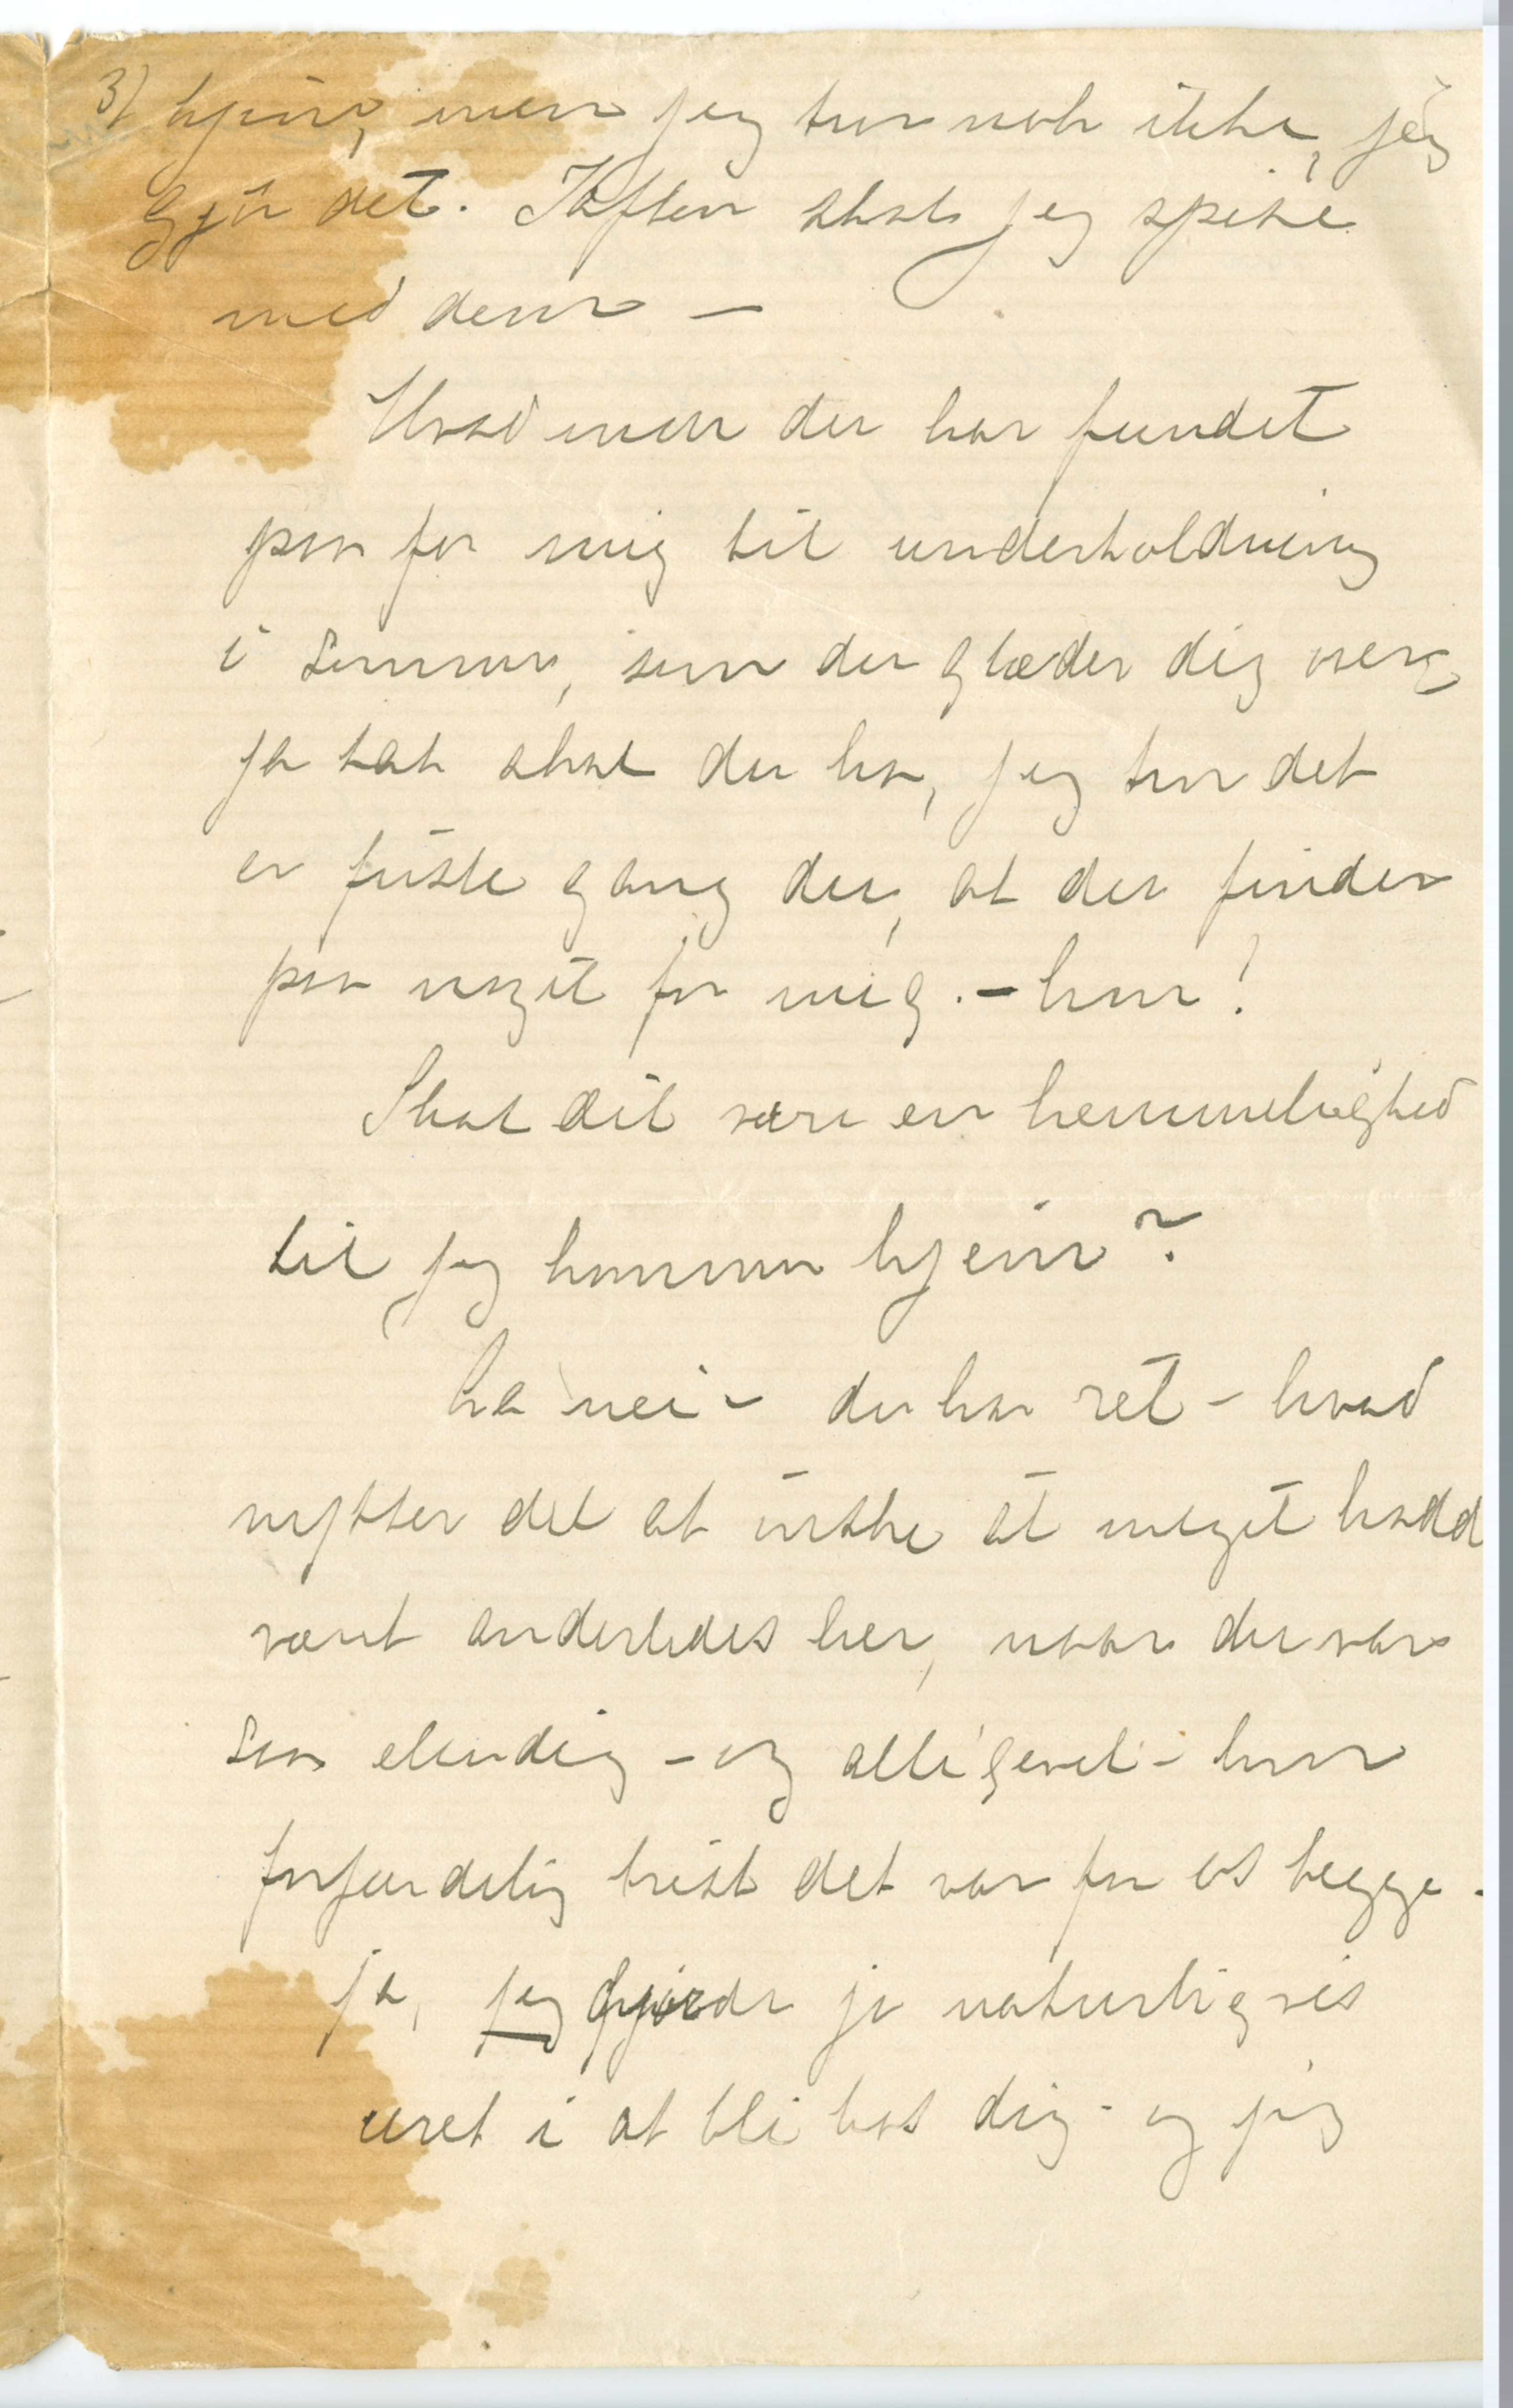 3) hjem, men jeg tror nok ikke, jeg
gjør det. Iaften skal jeg spise
med dem –
Hvad mon du har fundet
paa for mig til underholdning
i sommer, som du glæder dig over,
ja tak skal du ha, jeg tror det
er første gang du, at du finder
paa noget for mig. – hvor!
Skal det være en hemmelighed
til jeg kommer hjem?
Ha nei – du har ret – hvad
nytter det at ønske at meget hadd
været anderledes her, naar du var
saa elendig – og alligevel – hvor
forfærdelig trist det var for os begge –
ja, jeg gjorde jo naturligvis
uret i at bli hos dig – og jeg